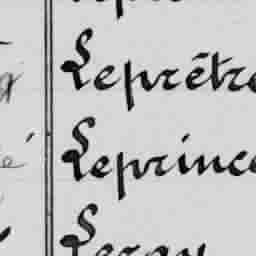 Leprêtre
Leprince
Leroy